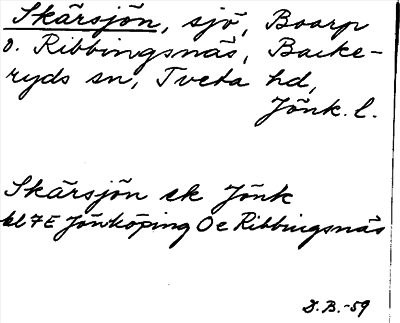 Skärsjön, sjö, Boarp
o. Ribbingsnäs, Backe-
ryds sn, Tveta hd,
Jönk. l.
Skärsjön ek Jönk
bl 7E Jönköping Oc Ribbingsnäs
D.B.-59